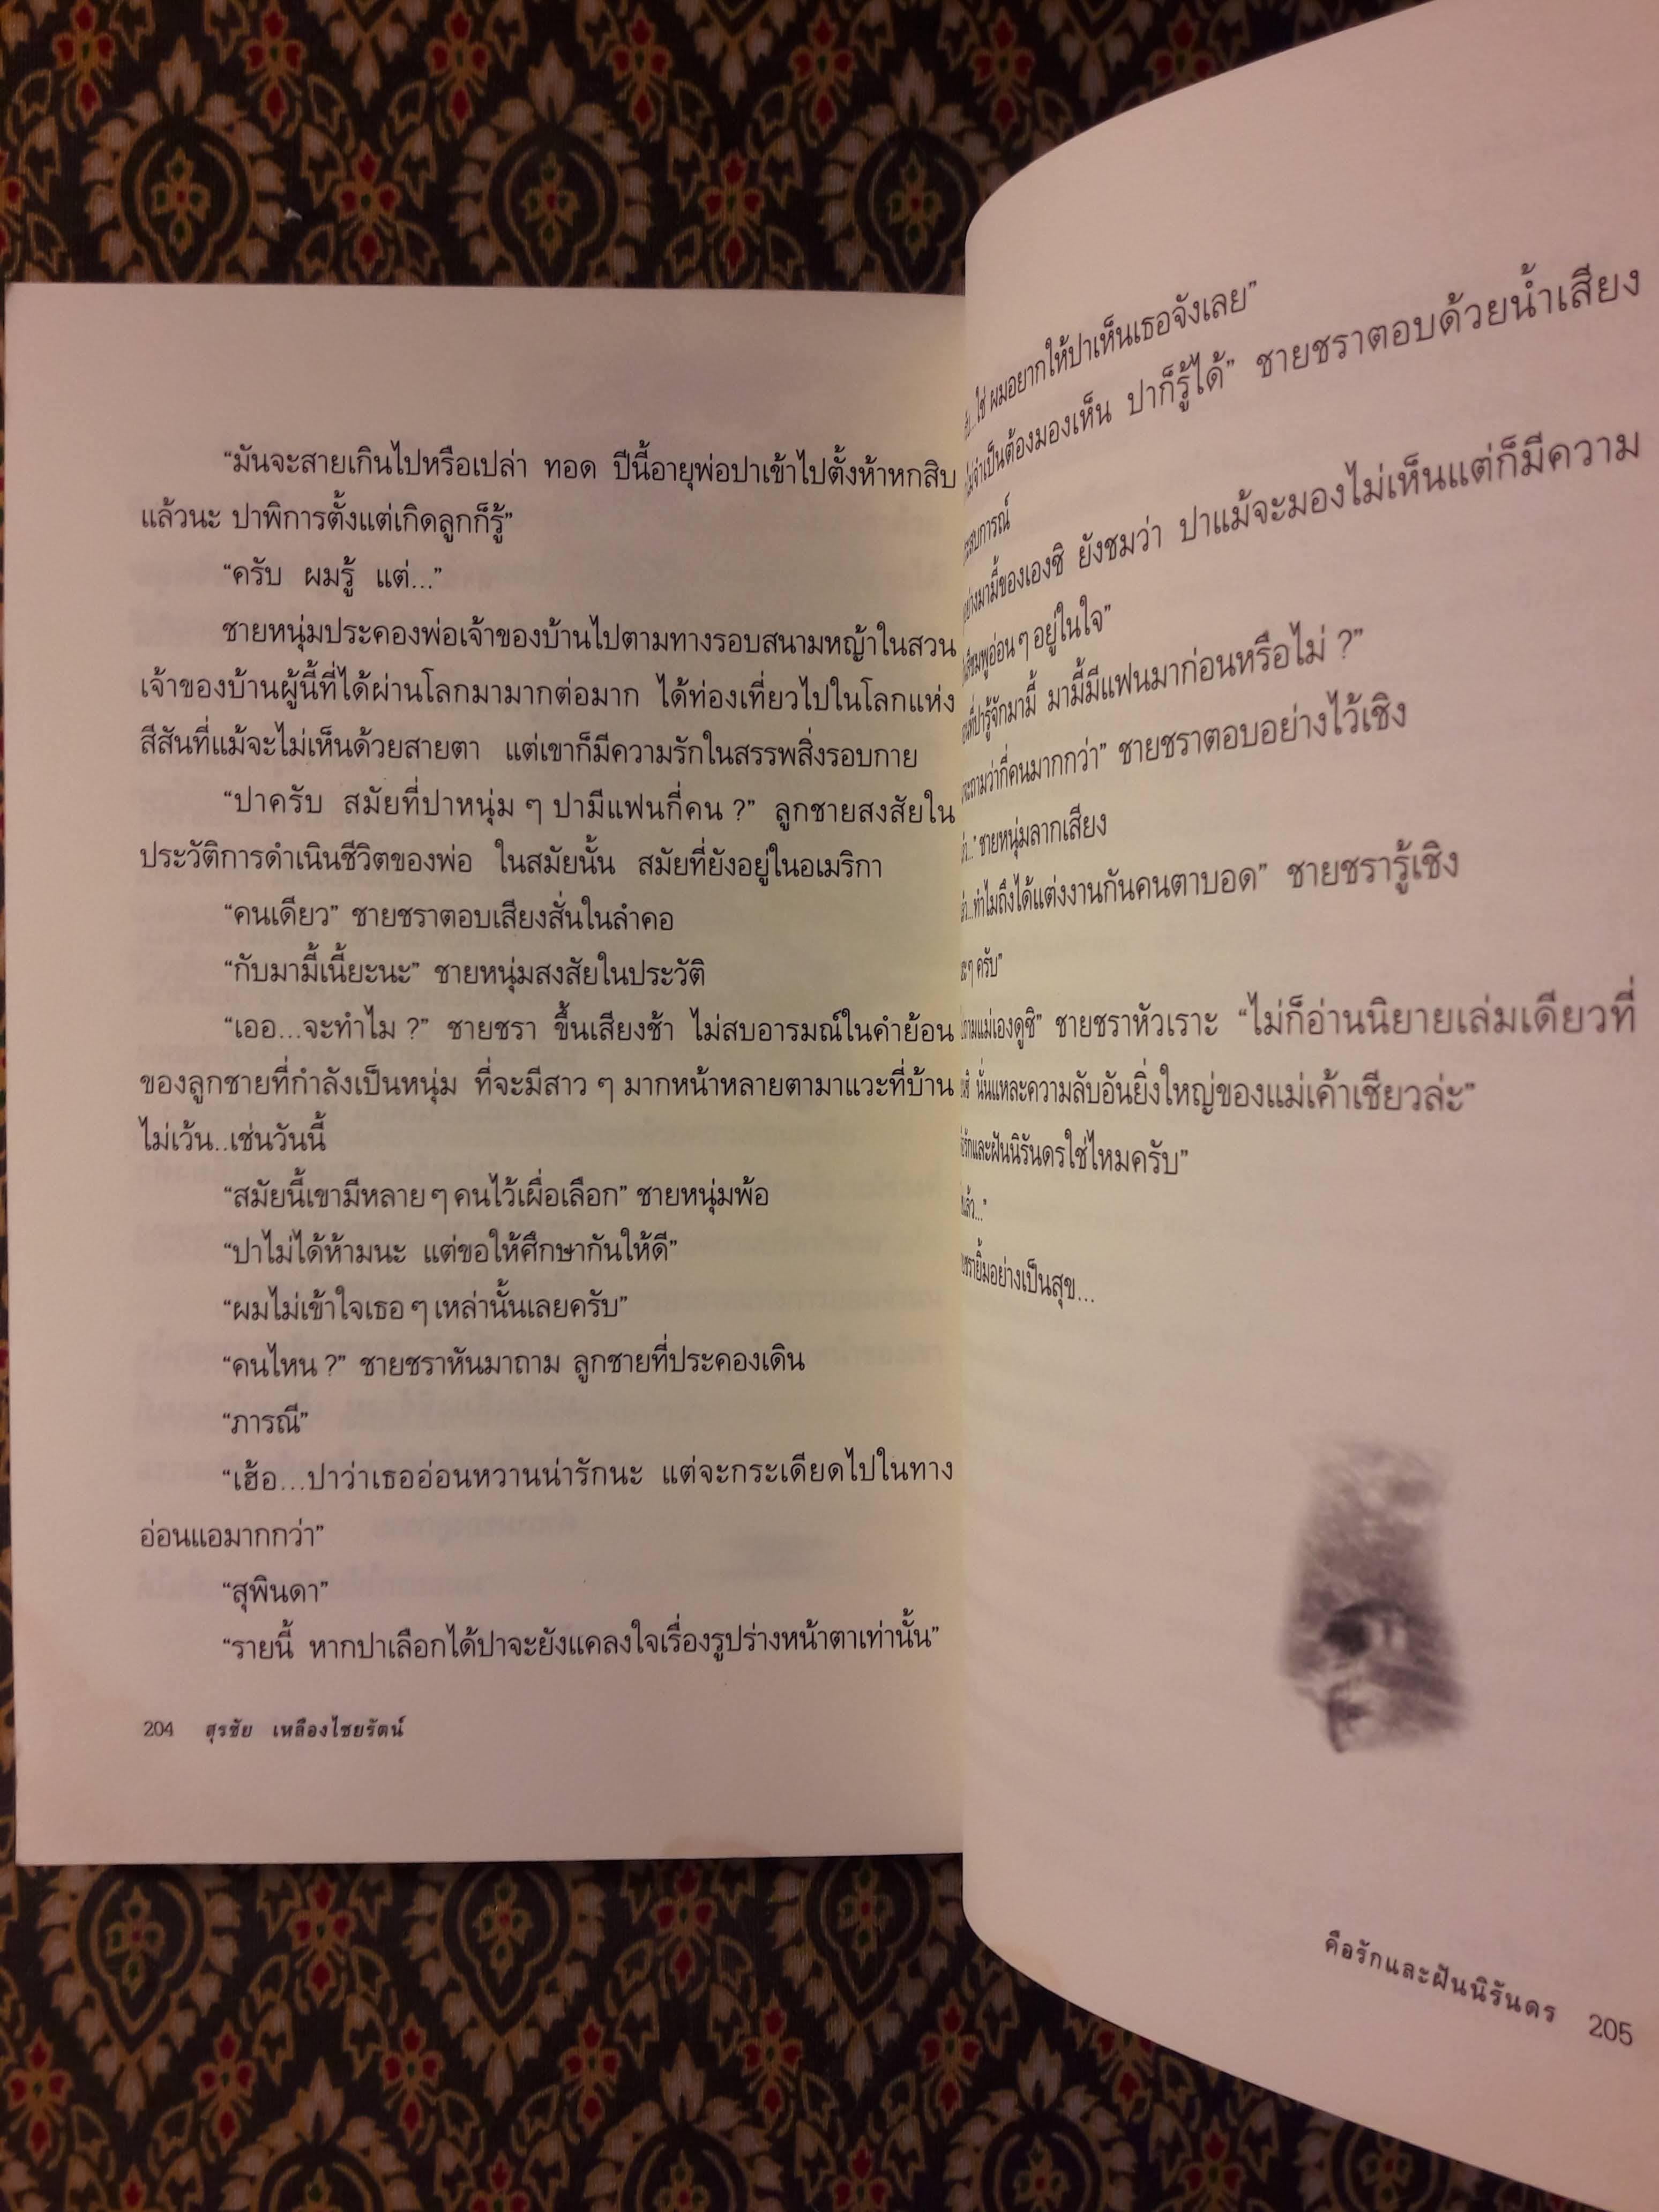 “มันจะสายเกินไปหรือเปล่า ทอด ปีนี้อายุพ่อปาเข้าไปตั้งห้าหกสิบ
แล้วนะ ปาพิการตั้งแต่เกิดลูกก็รู้”
“ครับ ผมรู้ แต่...”
ชายหนุ่มประคองพ่อเจ้าของบ้านไปตามทางรอบสนามหญ้าในสวน
เจ้าของบ้านผู้นี้ที่ได้ผ่านโลกมามากต่อมาก ได้ท่องเที่ยวไปในโลกแห่ง
สีสันที่แม้จะไม่เห็นด้วยสายตา แต่เขาก็มีความรักในสรรพสิ่งรอบกาย
“ปาครับ สมัยที่ปาหนุ่ม ๆ ปามีแฟนกี่คน ?” ลูกชายสงสัยใน
ประวัติการดำเนินชีวิตของพ่อ ในสมัยนั้น สมัยที่ยังอยู่ในอเมริกา
“คนเดียว” ชายชราตอบเสียงสั่นในลำคอ
“กับมามี้เนี้ยะนะ” ชายหนุ่มสงสัยในประวัติ
“เออ...จะทำไม ?” ชายชรา ขึ้นเสียงช้า ไม่สบอารมณ์ในคำย้อน
ของลูกชายที่กำลังเป็นหนุ่ม ที่จะมีสาว ๆ มากหน้าหลายตามาแวะที่บ้าน
ไม่เว้น..เช่นวันนี้
“สมัยนี้เขามีหลาย ๆ คนไว้เผื่อเลือก” ชายหนุ่มพ้อ
“ปาไม่ได้ห้ามนะ แต่ขอให้ศึกษากันให้ดี”
“ผมไม่เข้าใจเธอ ๆ เหล่านั้นเลยครับ”
“คนไหน ?” ชายชราหันมาถาม ลูกชายที่ประคองเดิน
“ภารณี”
“เฮ้อ...ปาว่าเธออ่อนหวานน่ารักนะ แต่จะกระเดียดไปในทาง
อ่อนแอมากกว่า”
“สุพินดา”
“รายนี้ หากปาเลือกได้ปาจะยังแคลงใจเรื่องรูปร่างหน้าตาเท่านั้น”
204 สุรชัย เหลืองไชยรัตน์
ใช่ ผมอยากให้ปาเห็นเธอจังเลย”
จำเป็นต้องมองเห็น ปาก็รู้ได้” ชายชราตอบด้วยน้ำเสียง
มามี้ของเองซิ ยังชมว่า ปาแม้จะมองไม่เห็นแต่ก็มีความ
สีชมพูอ่อน ๆ อยู่ในใจ”
ปารู้จักมามี้ มามี้มีแฟนมาก่อนหรือไม่ ?”
ถามว่ากี่คนมากกว่า” ชายชราตอบอย่างไว้เชิง
ชายหนุ่มลากเสียง
ทำไมถึงได้แต่งงานกันคนตาบอด” ชายชรารู้เชิง
ครับ”
ถามแม่เองดูซิ” ชายชราหัวเราะ “ไม่ก็อ่านนิยายเล่มเดียวที่
นั่นแหละความลับอันยิ่งใหญ่ของแม่เค้าเชียวล่ะ”
รักและฝันนิรันดรใช่ไหมครับ”
แล้ว...”
ยิ้มอย่างเป็นสุข...
คือรักและฝันนิรันดร 205